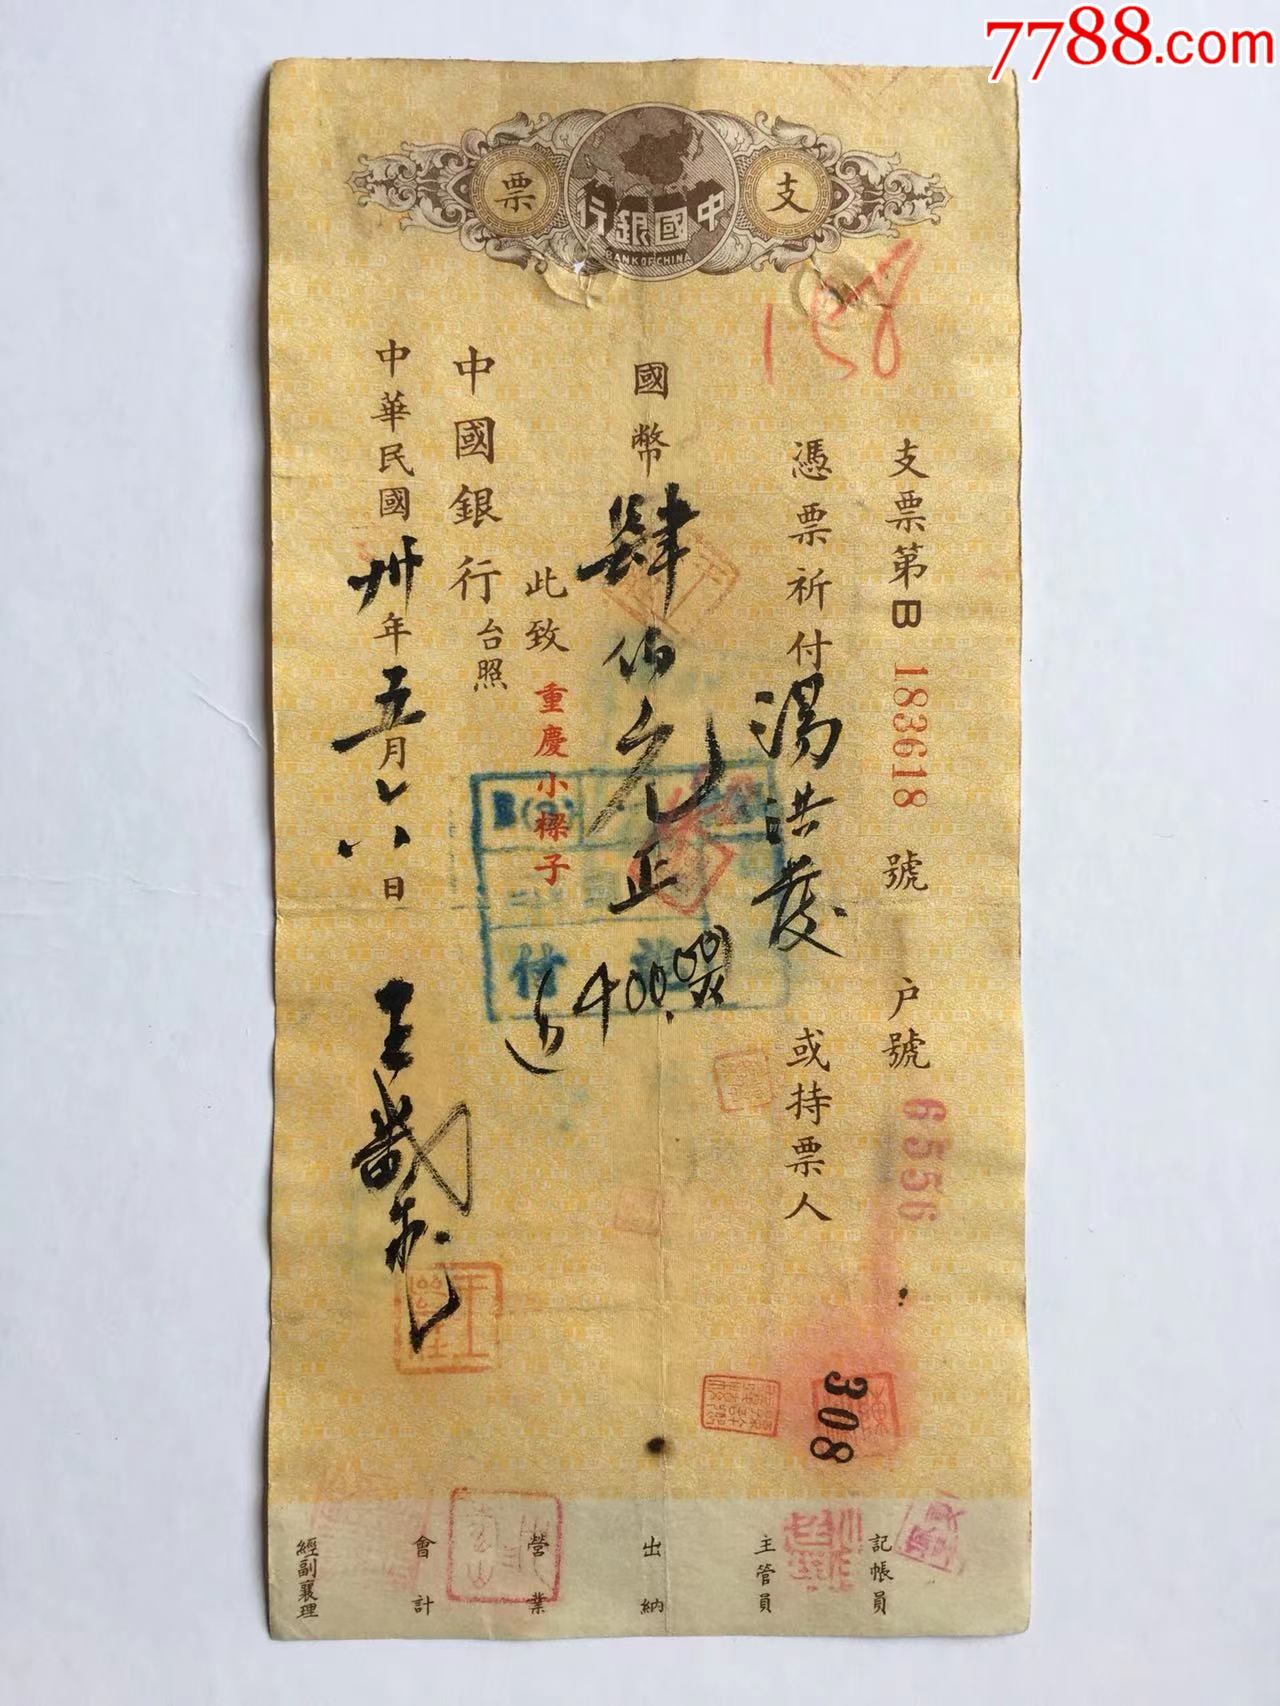 7788.com
支票
中國銀行
BANK OF CHINA
158
支票第B 183618 號 户號 6556
憑票祈付湯洪發 或持票人
國幣肆佰元正
400.00
此致 重慶小樑子
中國銀行台照
中華民國卅年五月 八日
付
308
記帳員
主管員
出納
營業
會計
經副襄理